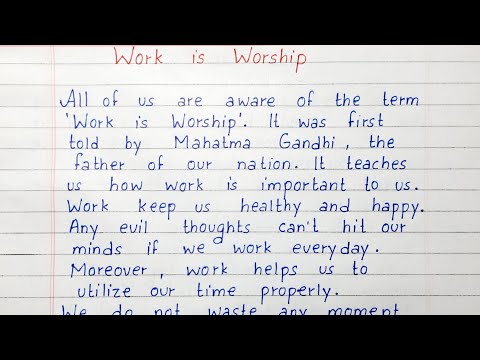 Work is Worship
All of us are aware of the term
'Work is Worship'. It was first
told by Mahatma Gandhi, the
father of our nation. It teaches
us how work is important to us.
Work keep us healthy and happy.
Any evil thoughts can't hit our
minds if we work everyday.
Moreover, work helps us to
utilize our time properly.
We do not waste any moment